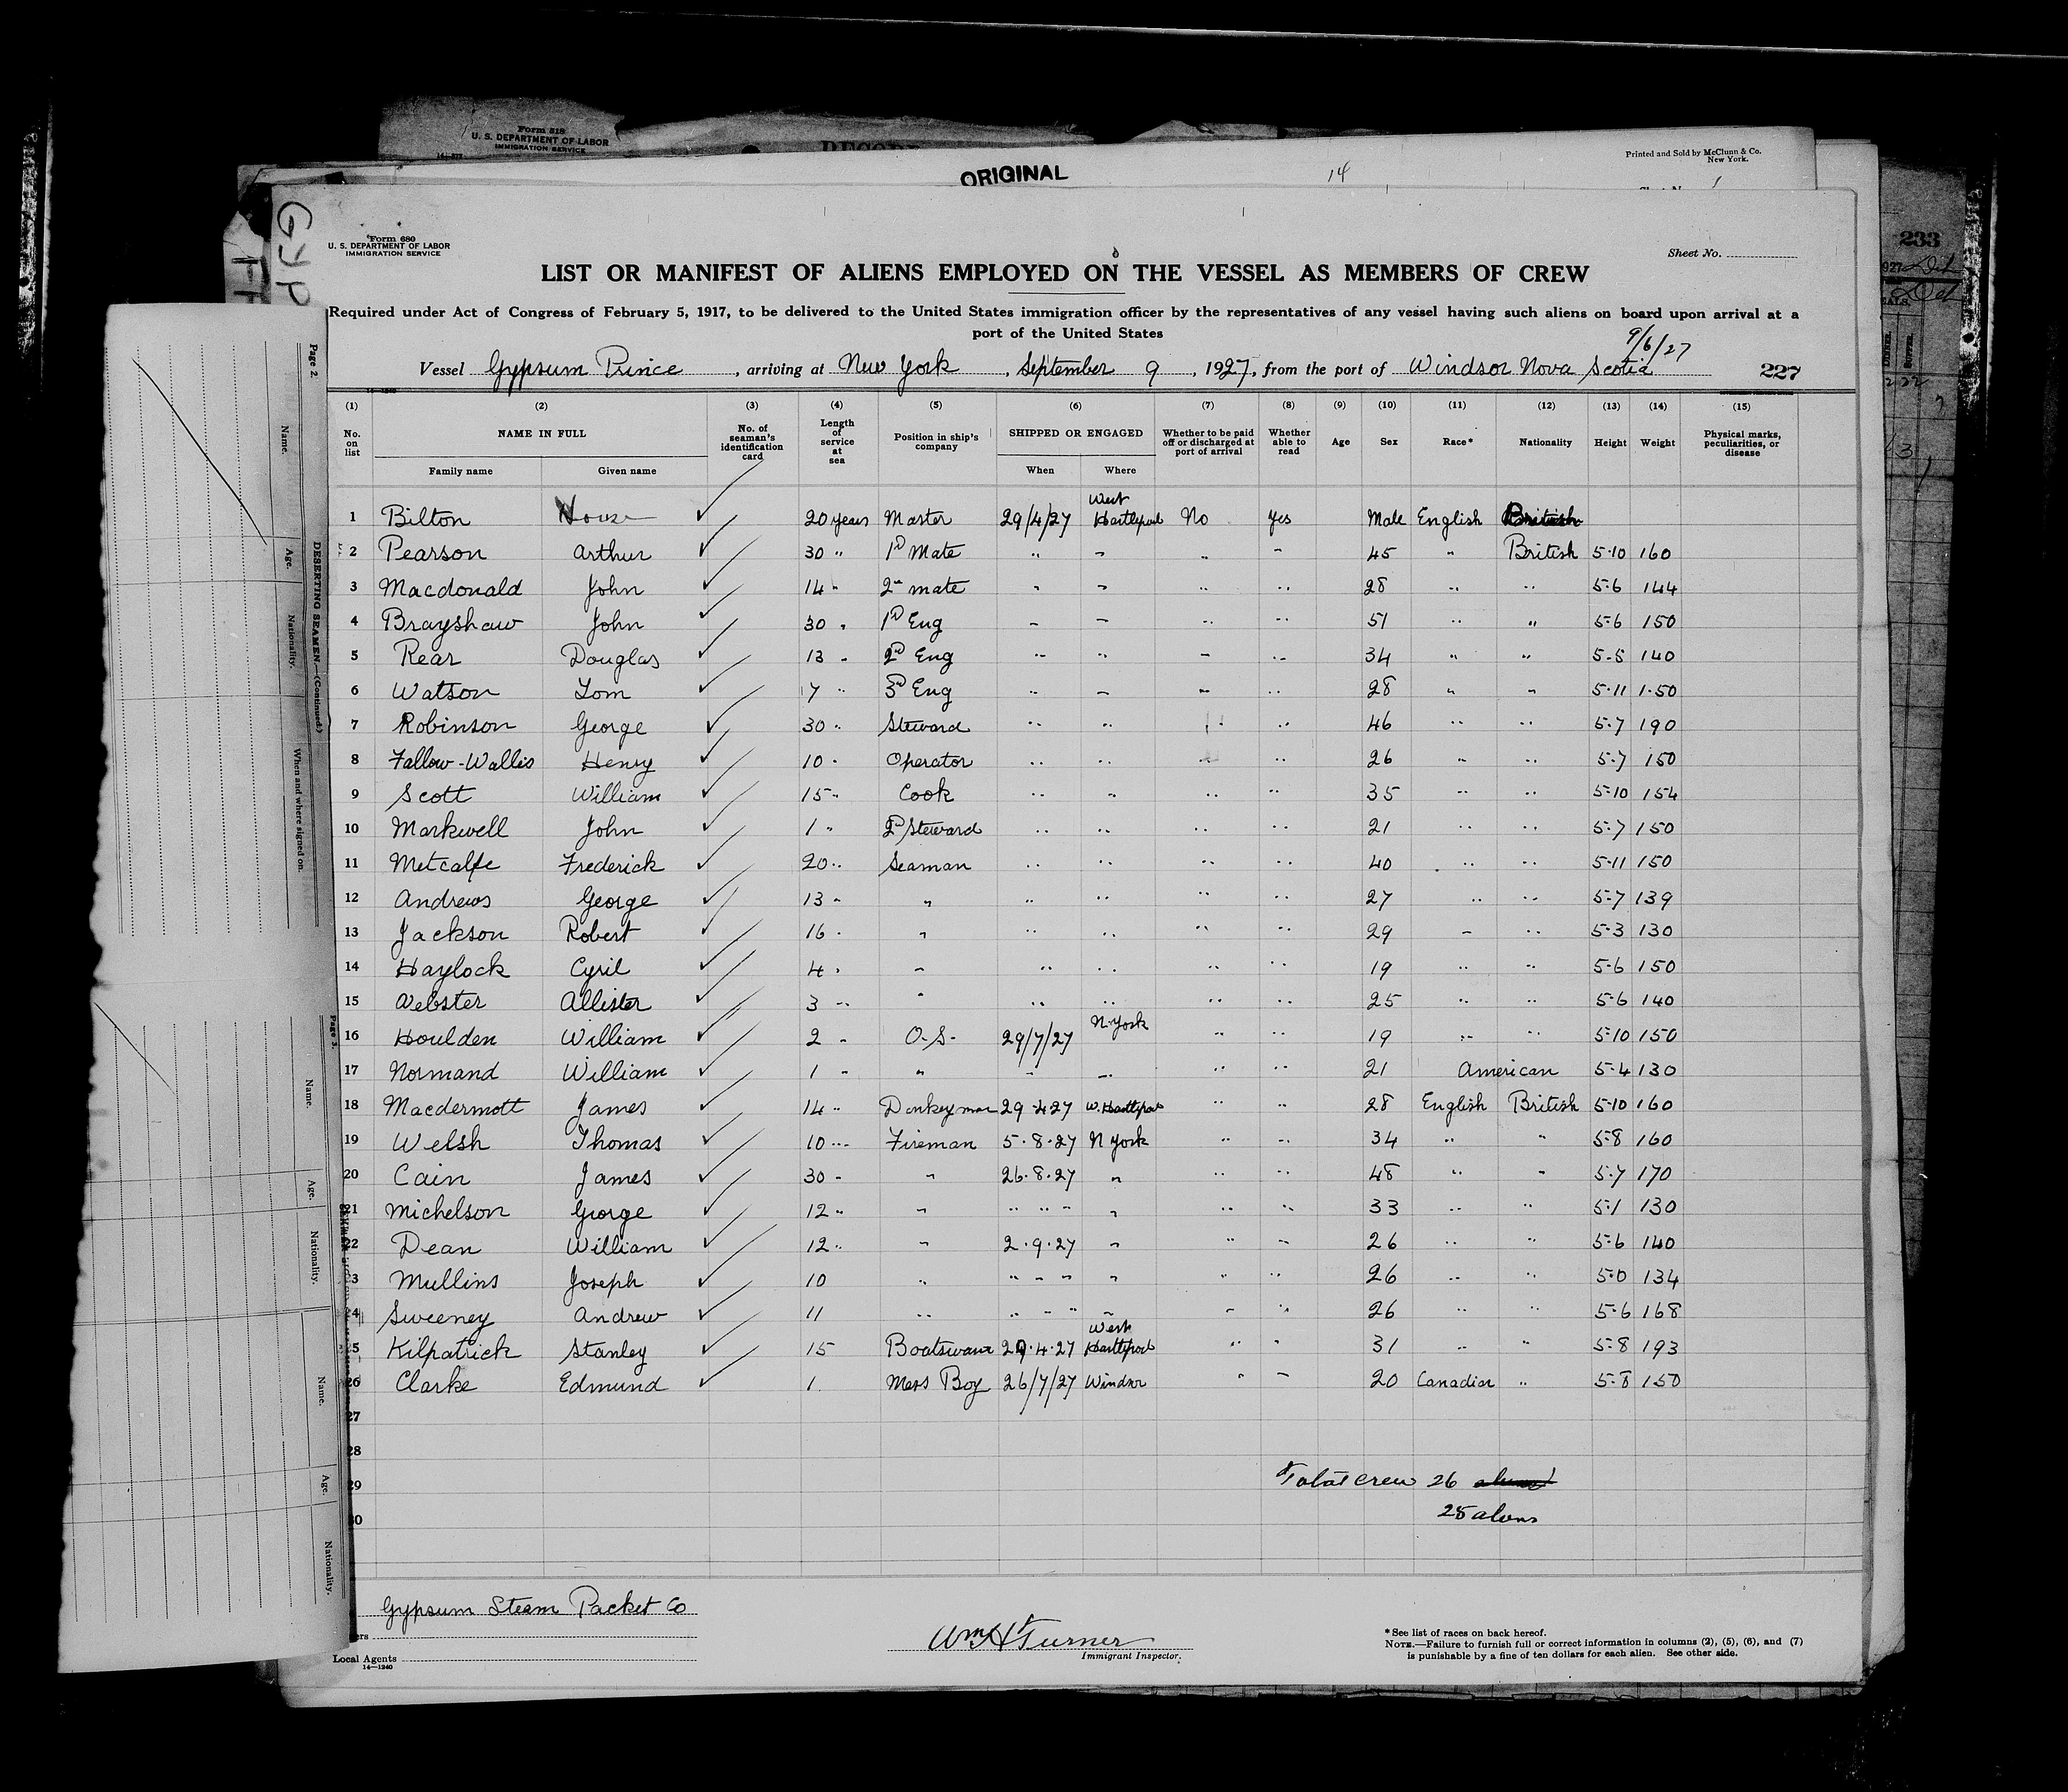 Form 518
U. S. DEPARTMENT OF LABOR
IMMIGRATION SERVICE
ORIGINAL
14
Printed and Sold by McClunn & Co.
New York.
GYP
233
Form 680
U. S. DEPARTMENT OF LABOR
IMMIGRATION SERVICE
Sheet No.
LIST OR MANIFEST OF ALIENS EMPLOYED ON THE VESSEL AS MEMBERS OF CREW
Required under Act of Congress of February 5, 1917, to be delivered to the United States immigration officer by the representatives of any vessel having such aliens on board upon arrival at a
port of the United States
9/6/27
Vessel Gypsum Prince, arriving at New York, September 9, 1927, from the port of Windsor Nova Scotia 227
(1) (2) (3) (4) (5) (6) (7) (8) (9) (10) (11) (12) (13) (14) (15)
No. on list NAME IN FULL No. of seaman's identification card Length of service at sea Position in ship's company SHIPPED OR ENGAGED Whether to be paid off or discharged at port of arrival Whether able to read Age Sex Race* Nationality Height Weight Physical marks, peculiarities, or disease
Family name Given name When Where
1 Bilton ✓ 20 years Master 29/4/27 West Hartlepool No yes Male English British
2 Pearson Arthur ✓ 30 " 1st Mate " " " " 45 " British 5-10 160
3 Macdonald John ✓ 14 " 2nd mate " " " " 28 " " 5-6 144
4 Brayshaw John ✓ 30 " 1st Eng " " " " 51 " " 5-6 150
5 Rear Douglas ✓ 13 " 2nd Eng " " " " 34 " " 5-5 140
6 Watson Tom ✓ 7 " 3rd Eng " " " " 28 " " 5-11 1-50
7 Robinson George ✓ 30 " Steward " " " " 46 " " 5-7 190
8 Fallow-Wallis Henry ✓ 10 " Operator " " " " 26 " " 5-7 150
9 Scott William ✓ 15 " Cook " " " " 35 " " 5-10 154
10 Markwell John ✓ 1 " 2nd Steward " " " " 21 " " 5-7 150
11 Metcalfe Frederick ✓ 20 " Seaman " " " " 40 " " 5-11 150
12 Andrews George ✓ 13 " " " " " " 27 " " 5-7 139
13 Jackson Robert ✓ 16 " " " " " " 29 " " 5-3 130
14 Haylock Cyril ✓ 4 " " " " " " 19 " " 5-6 150
15 Webster Allister ✓ 3 " " " " " " 25 " " 5-6 140
16 Houlden William ✓ 2 " O.S. 29/7/27 N. York " " 19 " " 5-10 150
17 Normand William ✓ 1 " " " " " " 21 American 5-4 130
18 Macdermott James ✓ 14 " Donkeyman 29-4-27 W. Hartlepool " " 28 English British 5-10 160
19 Welsh Thomas ✓ 10 " Fireman 5.8.27 N York " " 34 " " 5-8 160
20 Cain James ✓ 30 " " 26.8.27 " " " 48 " " 5-7 170
21 Michelson George ✓ 12 " " " " " " " " 33 " " 5-1 130
22 Dean William ✓ 12 " " 2.9.27 " " " 26 " " 5-6 140
23 Mullins Joseph ✓ 10 " " " " " " " 26 " " 5-0 134
24 Sweeney Andrew ✓ 11 " " " " " " " 26 " " 5-6 168
25 Kilpatrick Stanley ✓ 15 Boatswain 29.4.27 West Hartlepool " " 31 " " 5-8 193
26 Clarke Edmund ✓ 1 Mess Boy 26/7/27 Windsor " " 20 Canadian " 5-8 150
27
28
29 Total crew 26
30 25 aliens
Gypsum Steam Packet Co
Local Agents
14—1240
Wm H Turner
Immigrant Inspector.
*See list of races on back hereof.
NOTE.—Failure to furnish full or correct information in columns (2), (5), (6), and (7)
is punishable by a fine of ten dollars for each alien. See other side.
Page 2.
DESERTING SEAMEN.—(Continued.)
Name. Age. Nationality. When and where signed on.
Page 3.
Name. Age. Nationality.
Name. Age. Nationality.